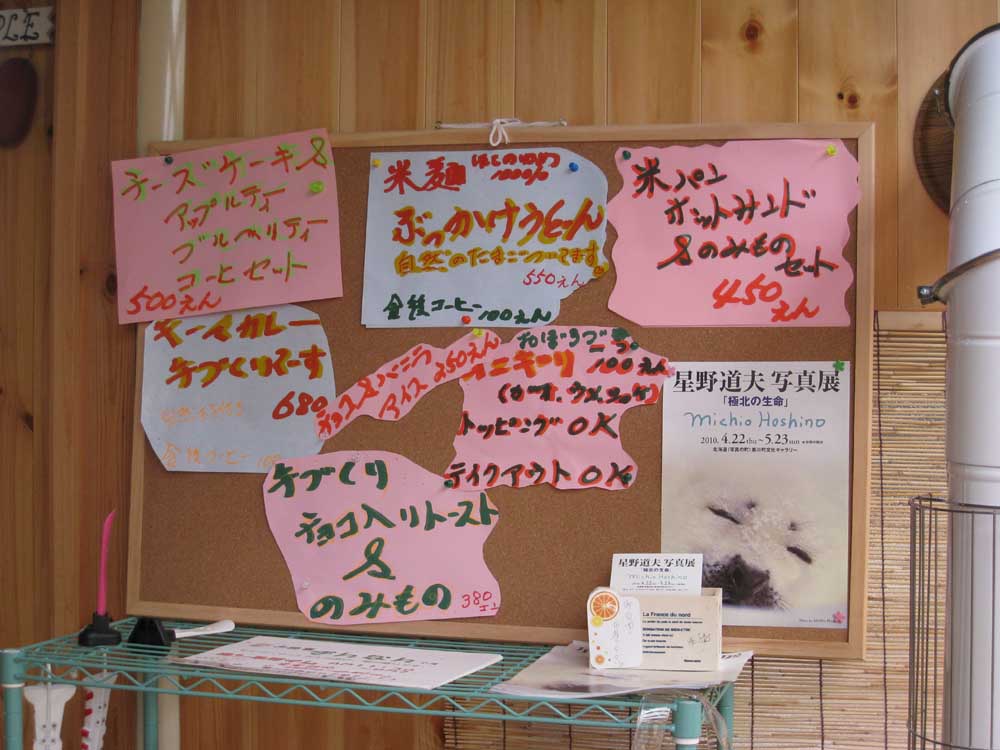 PLE
チーズケーキ &
アップルティ
ブルベリティー
コーヒセット
500えん
米麺
100%
ぶっかけうどん
自然のたまごついてます
550えん
食後コーヒー100えん
米パン
ホットサンド
&のみもの
セット
450えん
キーマカレー
手づくりでーす
680
食後コーヒー 100
チョコ&バニラ
アイス 250えん
オニギーリ 100えん
トッピングOK
テイクアウトOK
手づくり
チョコ入リトースト
&
のみもの 380エン
星野道夫 写真展
「極北の生命」
Michio Hoshino
2010. 4.22thu～5.23sun
北海道「写真の町」東川町文化ギャラリー
星野道夫 写真展
「極北の生命」
Michio Hoshino
La France du nord